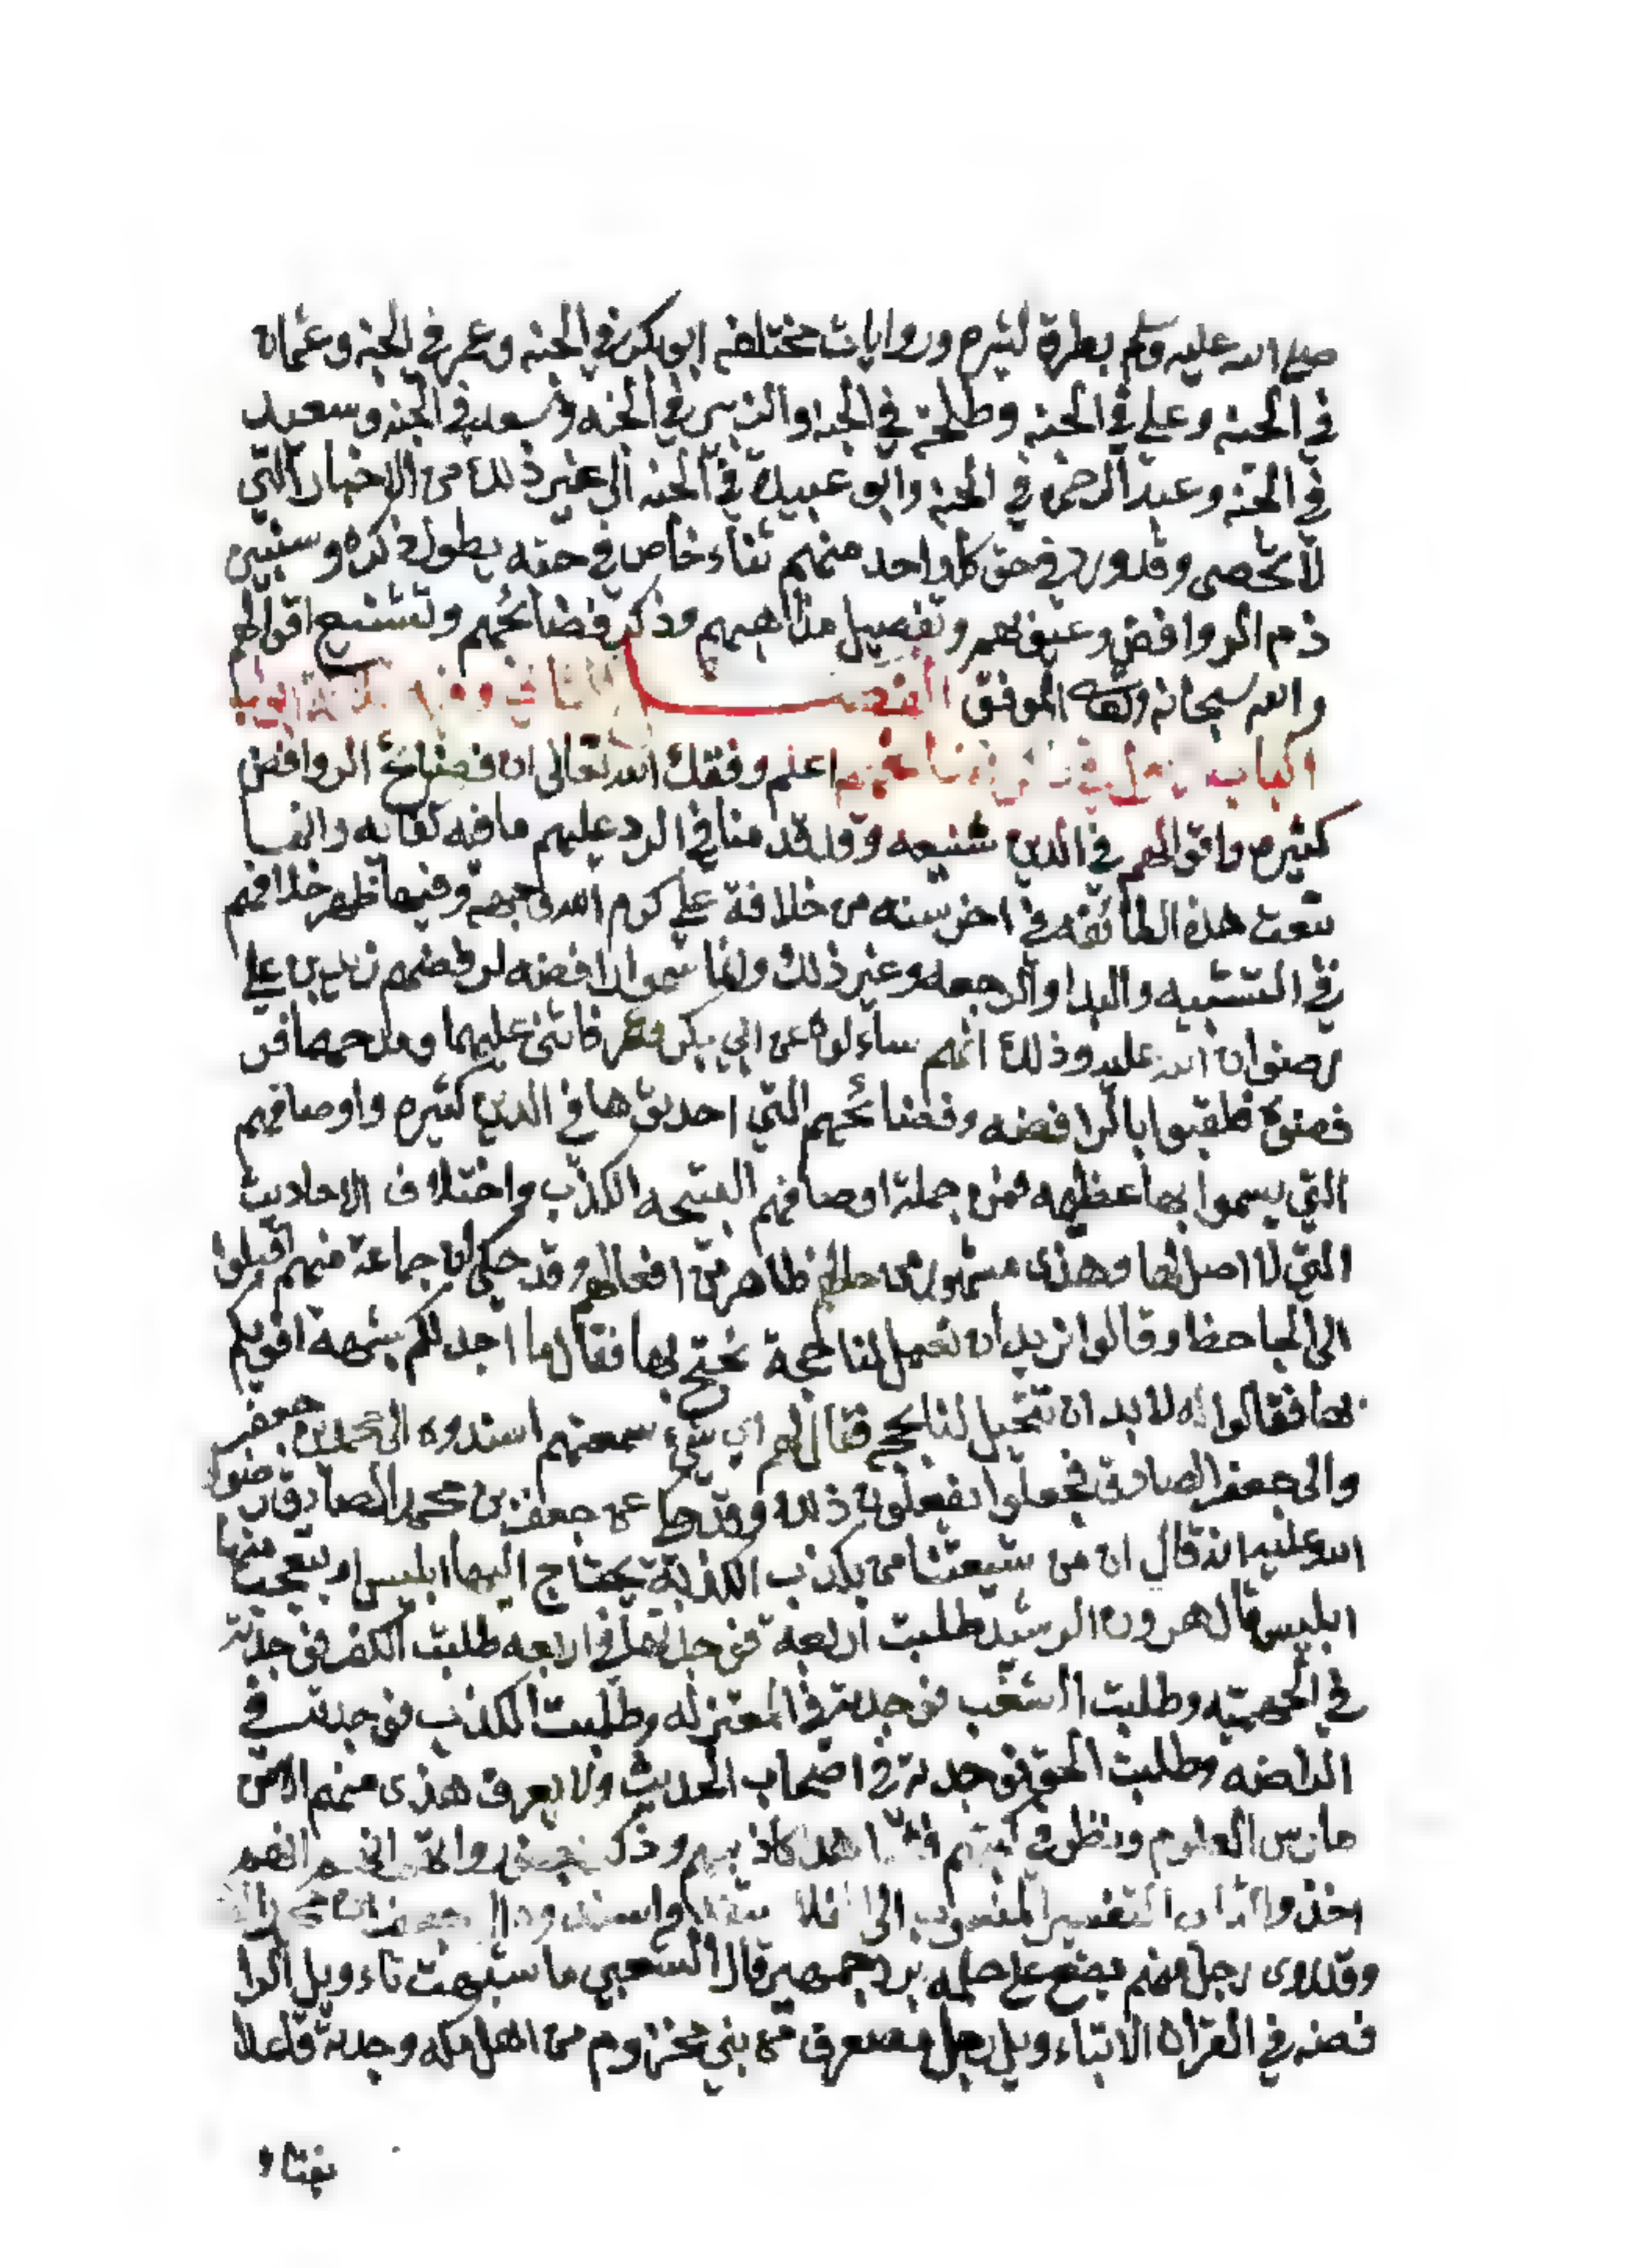 صلى الله عليه وسلم بطرق كثيره وروايات مختلفه ابو بكر في الجنه وعمر في الجنه وعثمان
في الجنه وعلي في الجنه وطلحة في الجنه والزبير في الجنه وسعد في الجنه وسعيد
في الجنه وعبد الرحمن في الجنه وابو عبيدة في الجنه الى غير ذلك من الاخبار التي
لا تحصى وقد ورد في حق كل واحد منهم ثناء خاص في حقه يطول ذكره وسنبين
ذم الروافض وعيوبهم وتفصيل مذاهبهم وذكر فضائحهم وتشنيع اقوالهم
والله سبحانه الموفق الفصل الثاني
الكتاب في فضائحهم اعلم وفقك الله تعالى ان فضائح الروافض
كثيره واقوالهم في الدين شنيعه وقد قدمنا في الرد عليهم ما فيه كفايه وانما
هذه الطائفه في اخر سنه من خلافة علي كرم الله وجهه وفيها ظهر خلافهم
في التشبيه والبدا والرجعه وغير ذلك وانما سموا رافضه لرفضهم زيد بن علي
رضوان الله عليه وذلك انهم ساءلوه عن ابي بكر وعمر فاثنى عليهما ومدحهما فر
فضوه فلقبوا بالرافضه وفضائحهم التي احدثوها في الدين كثيره واوصافهم
التي يسموا بها عظيمه فمن جملة اوصافهم القبيحه الكذب واختلاف الاحاديث
التي لا اصل لها وهذى مشهور من ظاهر من افعالهم وقد حكي ان جماعة منهم اقبلوا
الى الجاحظ وقالوا نريد ان تعمل لنا حجة نحتج بها فقال ما اجد لكم شبهة اقويكم
بها فقالوا له لا بد ان تتحيل لنا بحجج فقال لهم اي شيء سمعتم اسندوه الى محمد بن جعفر
والى جعفر الصادق فجعلوا يفعلون ذلك وقد حكي عن جعفر بن محمد الصادق رضوان
الله عليه انه قال ان من شيعتنا من يكذب الكذبة يحتاج اليها ابليس او يتعجب منها
ابليس قال هرون الرشيد طلبت اربعة فوجدتها في اربعه طلبت الكفر فوجدته
في الجهميه وطلبت الشغب فوجدته في المعتزله وطلبت الكذب فوجدته في
الرافضه وطلبت الحق فوجدته في اصحاب الحديث ولا يعرف هذى منهم الا من
مارس العلوم ونظر في كتبهم اكاذيبهم وذكر انهم
اخذوا كتاب التفسير المنسوب الى واسندوه الى جعفر بن محمد
وقد روى رجل منهم قال الشعبي ما شبهت تاءويل الرا
فضه في القران الا بتاءويل رجل من بني مخزوم من اهل مكه وجدته قاعدا
بفناء